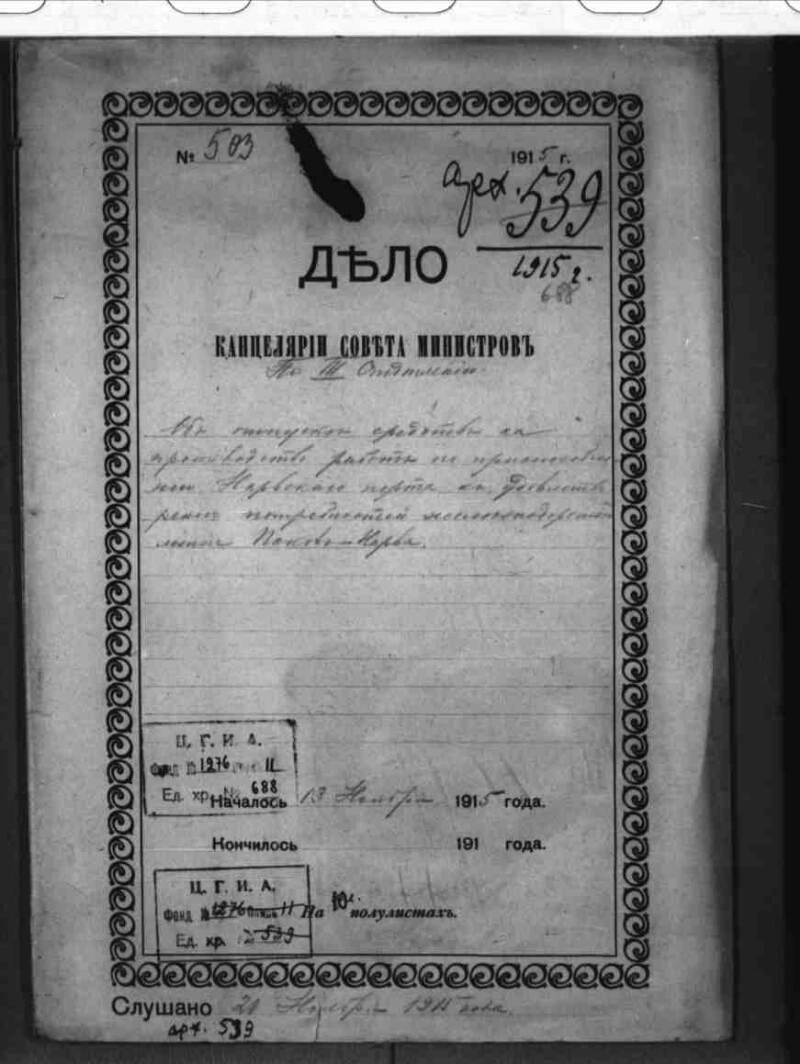 № 503
1915 г.
арх. 539
1915 г.
688
ДѢЛО
КАНЦЕЛЯРІИ СОВѢТА МИНИСТРОВЪ
По III Отдѣленію.
Объ отпускѣ средствъ на
производство работъ по приспособле
нію Нарвскаго порта къ удовлетво
ренію потребностей желѣзнодорожной
линіи Псковъ-Нарва.
Ц. Г. И. А.
Фонд № 1276 Опись 11
Ед. хр. № 688
Началось 13 Ноября 1915 года.
Кончилось 191 года.
Ц. Г. И. А.
Фонд № 1276 Опись 11
На 10 полулистахъ.
Ед. хр. № 539
Слушано 20 Ноября 1915 года.
арх. 539